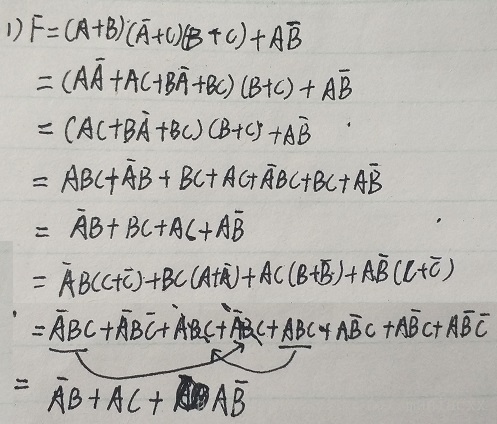 1) F=(A+B)(Ā+C)(B+C)+AB̄
=(AĀ+AC+BĀ+BC)(B+C)+AB̄
=(AC+BĀ+BC)(B+C)+AB̄
=ABC+ĀB+BC+AC+ĀBC+BC+AB̄
=ĀB+BC+AC+AB̄
=ĀB(C+C̄)+BC(A+Ā)+AC(B+B̄)+AB̄(C+C̄)
=ĀBC+ĀBC̄+ABC+ĀBC+ABC+AB̄C+AB̄C+AB̄C̄
=ĀB+AC+AB̄